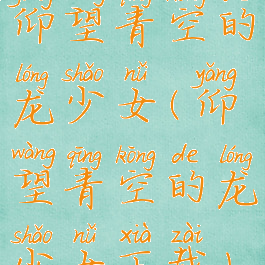 仰望青空的
lóng shǎo nǚ yǎng
龙少女(仰
wàng qīng kōng de lóng
望青空的龙
shǎo nǚ xià zài
少女下载)